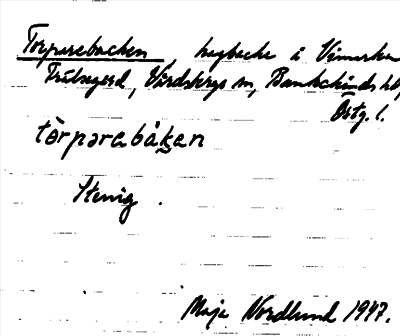 Torparebacken hagbacke i Vimarka
Trilsegerd, Vårdsbergs sn, Bankekinds hd,
Östg. l.
tòrparebåken
Stenig.
Maja Nordlund 1947.